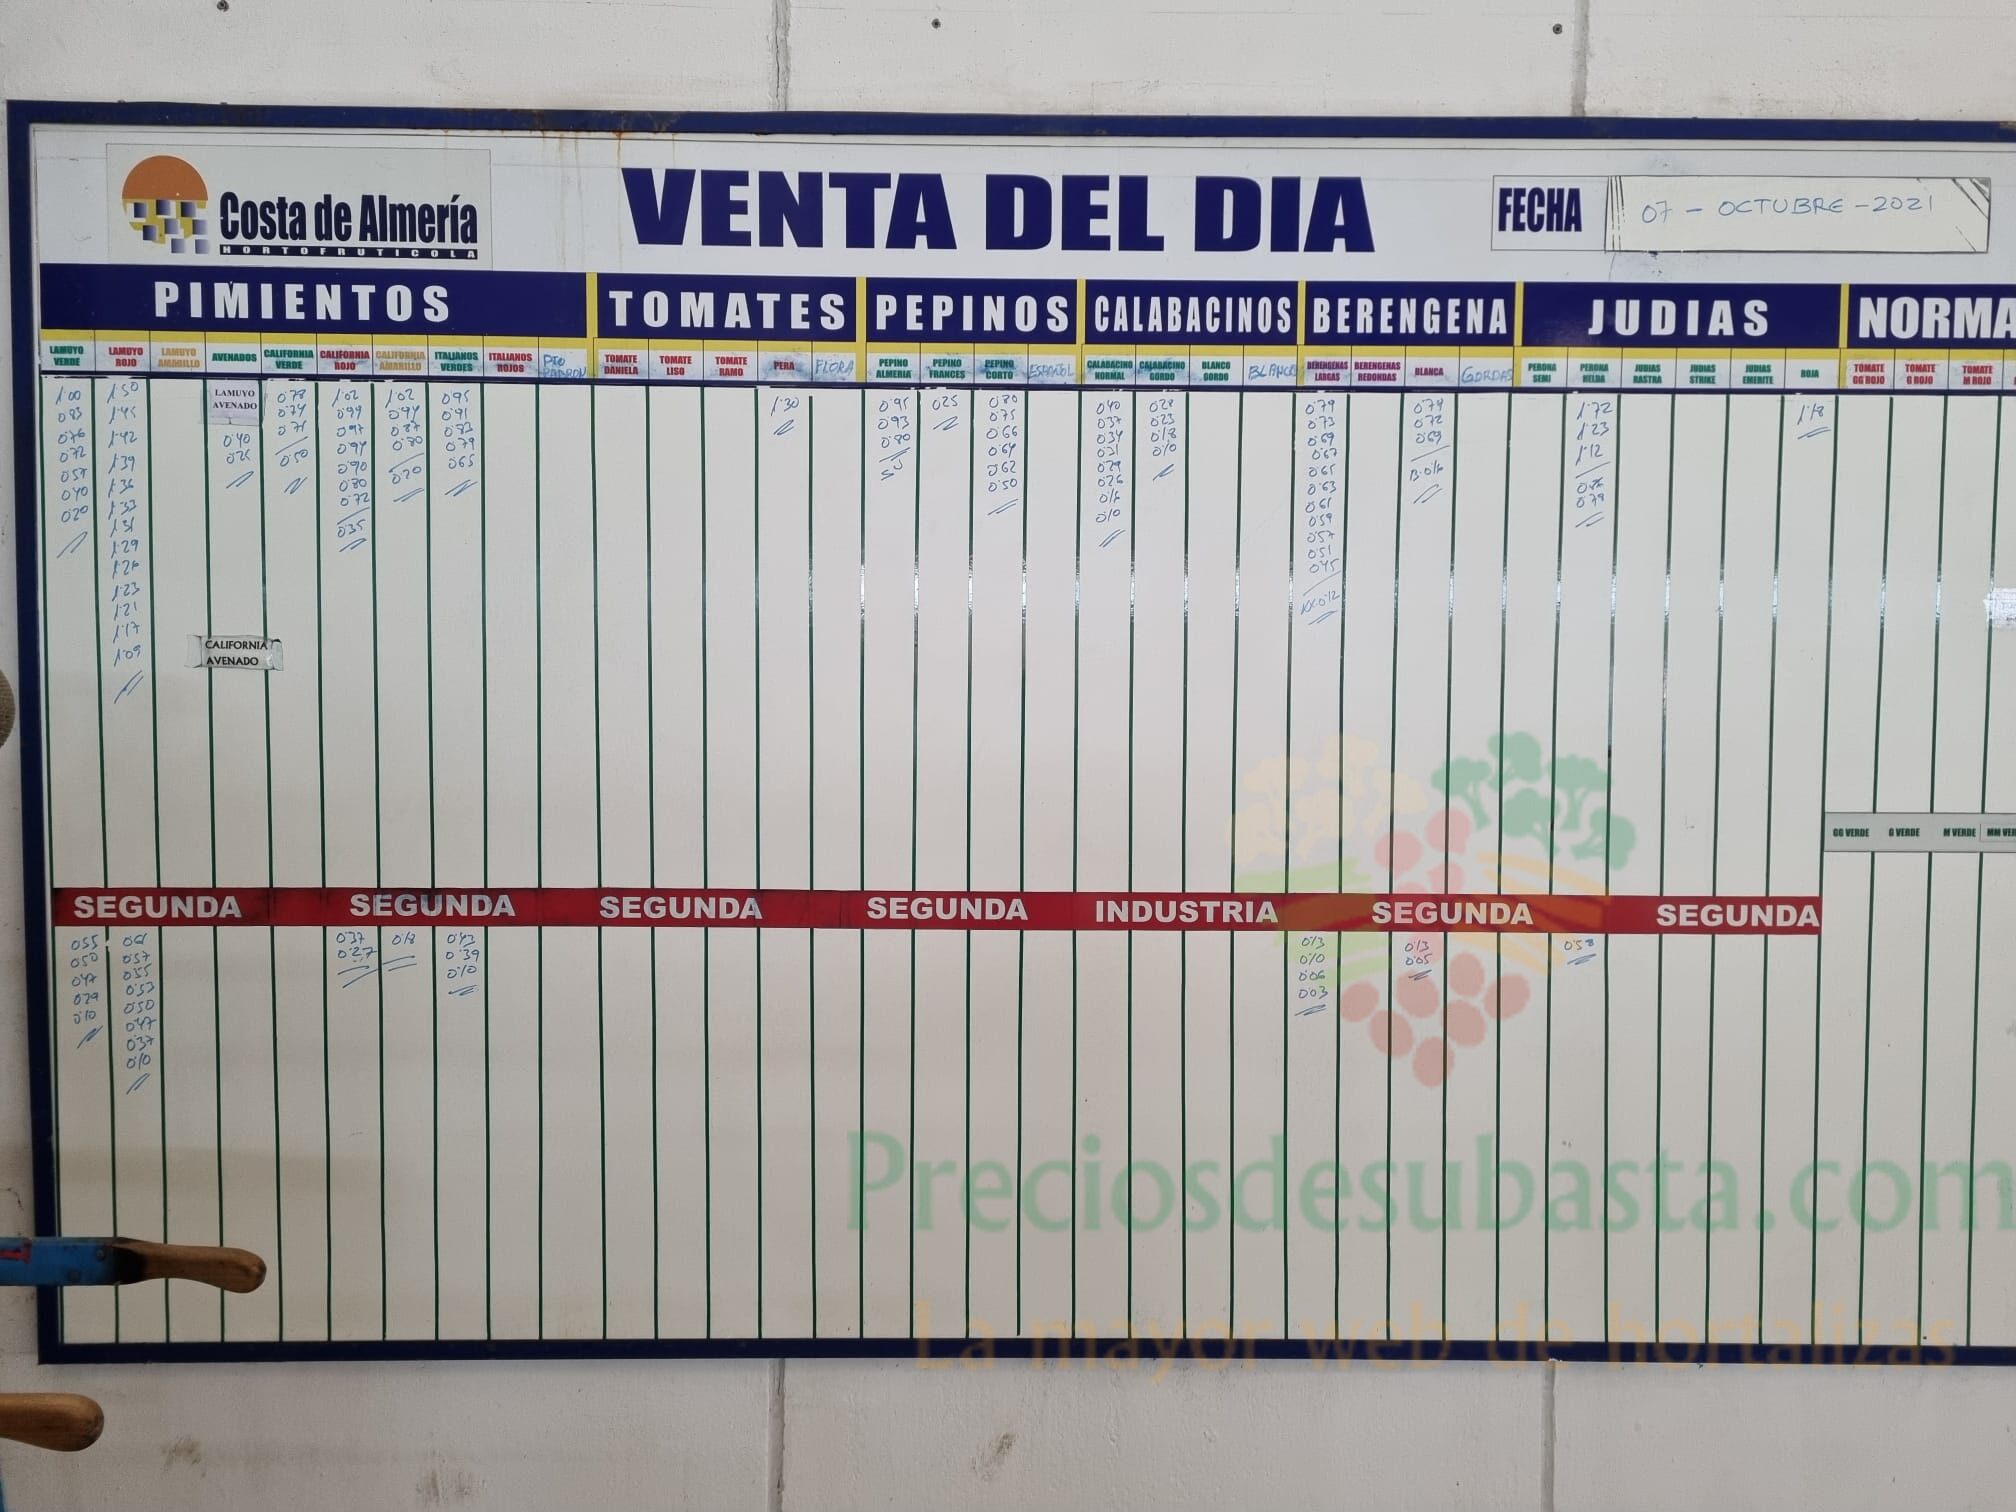 Costa de Almería
HORTOFRUTICOLA
VENTA DEL DIA
FECHA 07 - OCTUBRE - 2021
PIMIENTOS TOMATES PEPINOS CALABACINOS BERENGENA JUDIAS NORMA
LAMUYO VERDE
LAMUYO ROJO
LAMUYO AMARILLO
AVENADOS
CALIFORNIA VERDE
CALIFORNIA ROJO
CALIFORNIA AMARILLO
ITALIANOS VERDES
ITALIANOS ROJOS
PTO PADRON
TOMATE DANIELA
TOMATE LISO
TOMATE RAMO
PERA
FLORA
PEPINO ALMERIA
PEPINO FRANCES
PEPINO CORTO
ESPAÑOL
CALABACINO NORMAL
CALABACINO GORDO
BLANCO GORDO
BLANCO
BERENGENAS LARGAS
BERENGENAS REDONDAS
BLANCA
GORDAS
PERONA SEMI
PERONA HELDA
JUDIAS RASTRA
JUDIAS STRIKE
JUDIAS EMERITE
ROJA
TOMATE GG ROJO
TOMATE G ROJO
TOMATE M ROJO
1'00
0'83
0'76
0'72
0'57
0'40
0'20
1'50
1'45
1'42
1'39
1'36
1'33
1'31
1'29
1'26
1'23
1'21
1'17
1'09
LAMUYO
AVENADO
0'40
CALIFORNIA
AVENADO
0'78
0'74
0'71
0'50
1'02
0'99
0'97
0'94
0'90
0'80
0'72
0'35
1'02
0'94
0'87
0'80
0'20
0'95
0'91
0'83
0'79
0'65
1'30
0'95
0'93
0'80
0'25
0'80
0'75
0'66
0'64
0'62
0'50
0'40
0'37
0'34
0'31
0'29
0'26
0'16
0'10
0'28
0'23
0'18
0'10
0'79
0'73
0'69
0'67
0'65
0'63
0'61
0'59
0'57
0'51
0'45
XX-0'12
0'79
0'72
0'69
B-0'16
1'72
1'23
1'12
0'79
1'18
GG VERDE G VERDE M VERDE MM VER
SEGUNDA SEGUNDA SEGUNDA SEGUNDA INDUSTRIA SEGUNDA SEGUNDA
0'55
0'50
0'47
0'29
0'10
0'61
0'57
0'55
0'53
0'50
0'47
0'37
0'10
0'37
0'27
0'18
0'43
0'39
0'10
0'13
0'10
0'06
0'03
0'13
0'05
0'58
Preciosdesubasta.com
La mayor web de hortalizas